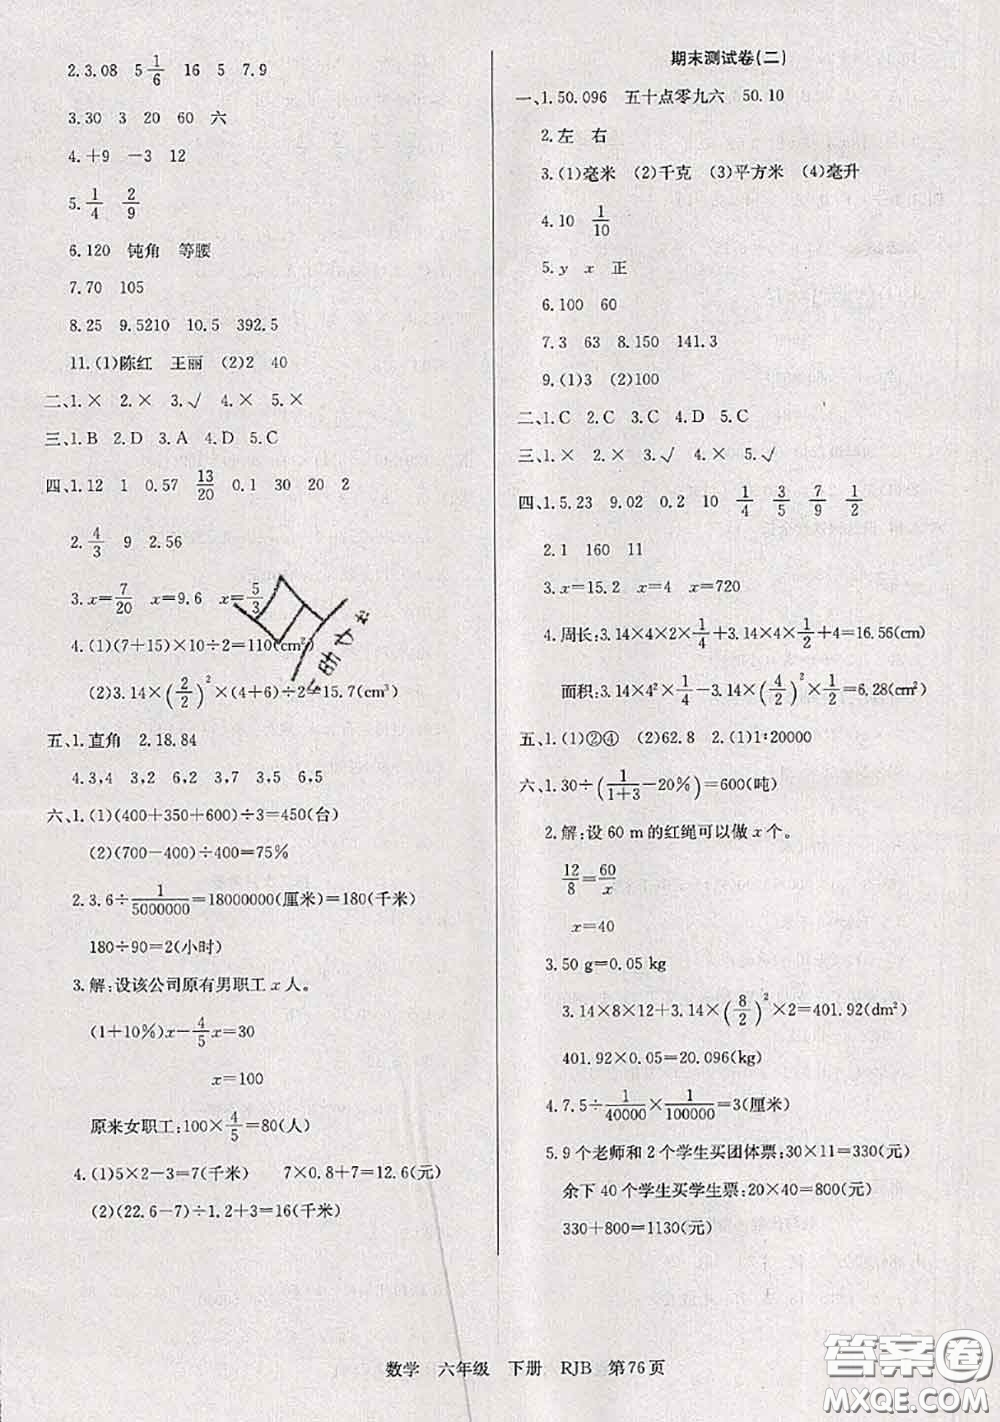 2.3.08 5 1/6 16 5 7.9
3.30 3 20 60 六
4.+9 −3 12
5. 1/4 2/9
6.120 钝角 等腰
7.70 105
8.25 9.5210 10.5 392.5
11.(1)陈红 王丽 (2)2 40
二、1.× 2.× 3.√ 4.× 5.×
三、1.B 2.D 3.A 4.D 5.C
四、1.12 1 0.57 13/20 0.1 30 20 2
2. 4/3 9 2.56
3.x=7/20 x=9.6 x=5/3
4.(1)(7+15)×10÷2=110(cm²)
(2)3.14×(2/2)²×(4+6)÷2=15.7(cm³)
五、1.直角 2.18.84
4.3,4 3,2 6,2 3,7 3,5 6,5
六、1.(1)(400+350+600)÷3=450(台)
(2)(700−400)÷400=75%
2.3.6÷1/5000000=18000000(厘米)=180(千米)
180÷90=2(小时)
3.解:设该公司原有男职工 x 人。
(1+10%)x−4/5x=30
x=100
原来女职工:100×4/5=80(人)
4.(1)5×2−3=7(千米) 7×0.8+7=12.6(元)
(2)(22.6−7)÷1.2+3=16(千米)
期末测试卷(二)
一、1.50.096 五十点零九六 50.10
2.左 右
3.(1)毫米 (2)千克 (3)平方米 (4)毫升
4.10 1/10
5.y x 正
6.100 60
7.3 63 8.150 141.3
9.(1)3 (2)100
二、1.C 2.C 3.C 4.D 5.C
三、1.× 2.× 3.√ 4.× 5.√
四、1.5.23 9.02 0.2 10 1/4 3/5 7/9 1/2
2.1 160 11
3.x=15.2 x=4 x=720
4.周长:3.14×4×2×1/4+3.14×4×1/2+4=16.56(cm)
面积:3.14×4²×1/4−3.14×(4/2)²×1/2=6.28(cm²)
五、1.(1)②④ (2)62.8 2.(1)1:20000
六、1.30÷(1/(1+3)−20%)=600(吨)
2.解:设 60 m 的红绳可以做 x 个。
12/8=60/x
x=40
3.50 g=0.05 kg
3.14×8×12+3.14×(8/2)²×2=401.92(dm²)
401.92×0.05=20.096(kg)
4.7.5÷1/40000×1/100000=3(厘米)
5.9 个老师和 2 个学生买团体票:30×11=330(元)
余下 40 个学生买学生票:20×40=800(元)
330+800=1130(元)
数学 六年级 下册 RJB 第76页
答案圈
MXQE.COM